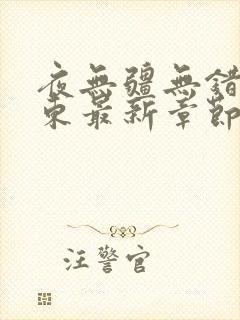 夜無疆無錯
東最新章節
汪警官